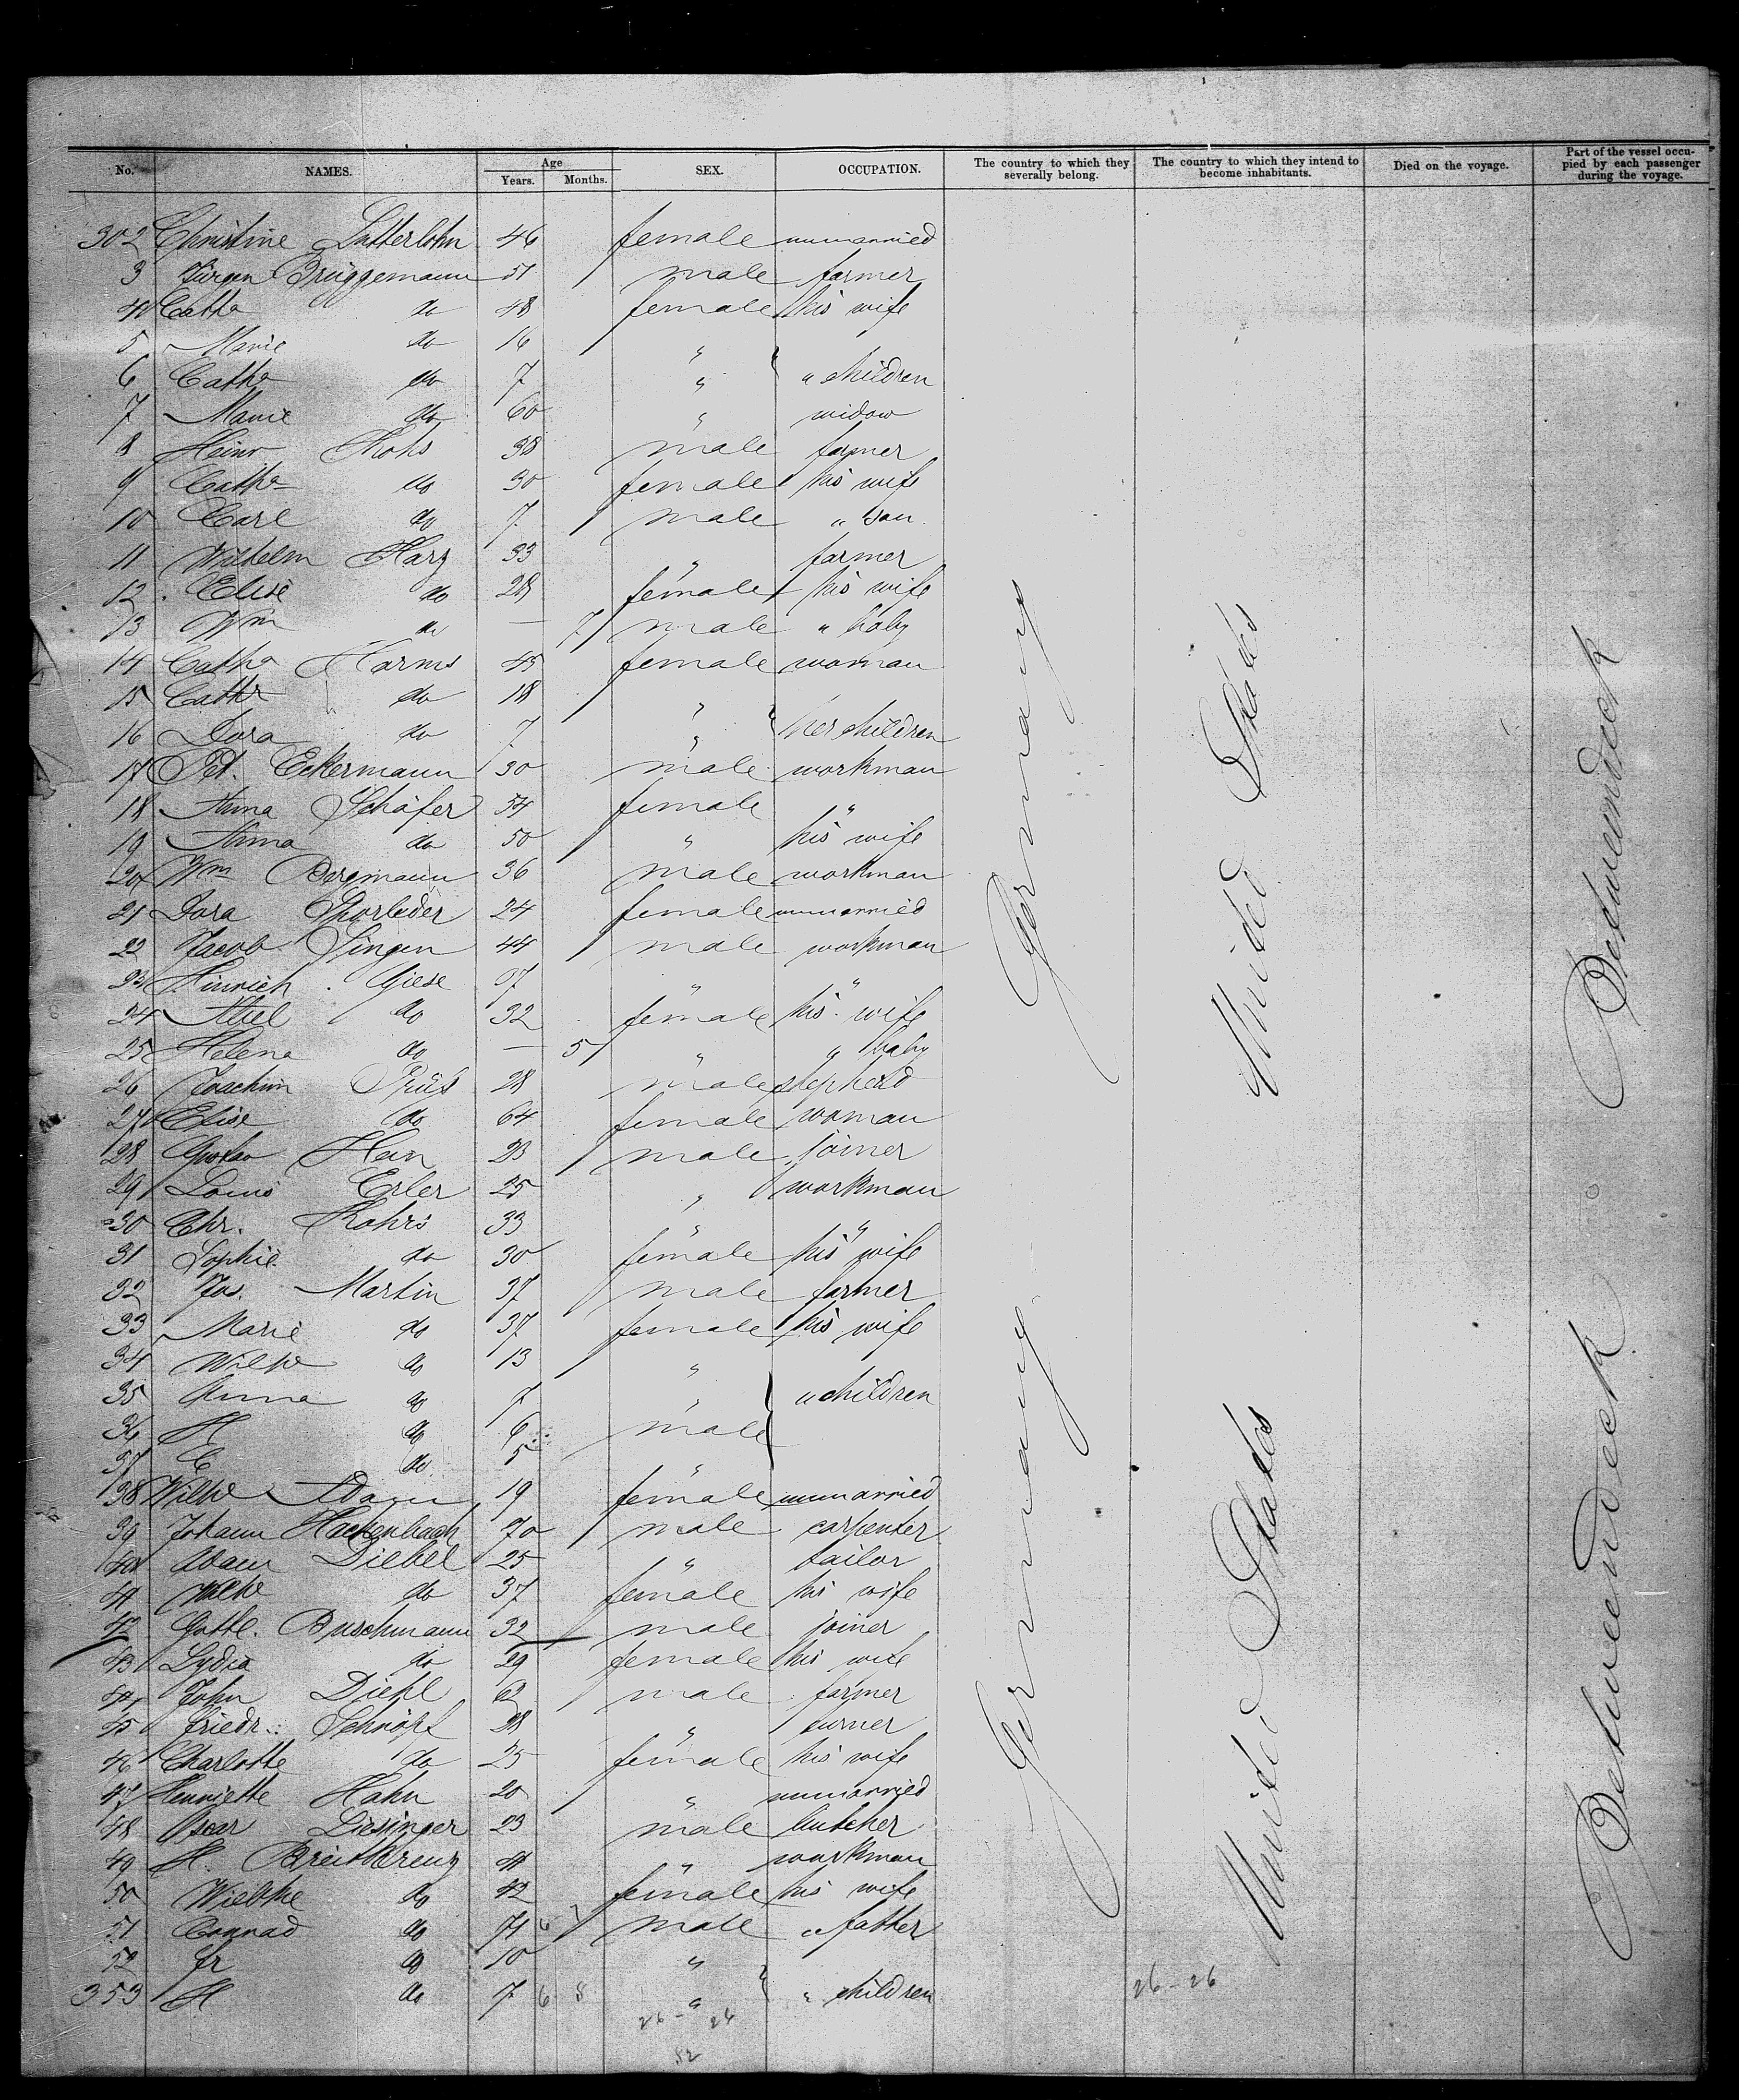 No. NAMES. Age Years. Months. SEX. OCCUPATION. The country to which they severally belong. The country to which they intend to become inhabitants. Died on the voyage. Part of the vessel occupied by each passenger during the voyage.
302 Christine Latterlohn 46 female unmarried
3 Jürgen Brüggemann 51 male farmer
4 Catha do 48 female his wife
5 Marie do 16 "
6 Catha do 7 " " children
7 Marie do 60 " widow
8 Heinr 38 male farmer
9 Catha do 30 female his wife
10 Carl do 7 male " son
11 Wilhelm Harz 33 " farmer
12 Elise do 28 female his wife
13 Wm do — 7 male " baby
14 Catha Harms 45 female woman
15 Catha do 18 "
16 Dora do 7 " her children
17 Pet. Eckermann 30 male workman
18 Anna Schäfer 54 female "
19 Anna do 50 " his wife
20 Wm Bergmann 36 male workman
21 Dora Thorleder 24 female unmarried
22 Jacob Singen 44 male workman
23 Hinrich Giese " "
24 Abel do 32 female his wife
25 Helena do — 5 " " baby
26 Joachim Prüss 28 male shepherd
27 Elise do 64 female woman
28 Hein 23 male joiner
29 Louis Erler 25 " workman
30 Chr. Rohrs 33 " "
31 Sophie do 30 female his wife
32 Jos. Martin 37 male farmer
33 Marie do 37 female his wife
34 Wilhe do 13 "
35 Anna do 7 " " children
36 H do 6 male
37 C do 5 "
38 Wilhe Adam 19 female unmarried
39 Johann Hackenbach 70 male carpenter
40 Adam Diebel 25 " tailor
41 Wilhe do 37 female his wife
42 Gottl. Buschmann 32 male joiner
43 Lydia do 29 female his wife
44 John Diehl 62 male farmer
45 Friedr. Schnöpf 28 " turner
46 Charlotte do 25 female his wife
47 Henriette Hahn 20 " unmarried
48 Oscar Liesinger 23 male butcher
49 H. Breitkreuz 41 " workman
50 Wiebke do 42 female his wife
51 Conrad do 71 male " father
52 Fr do 10 "
353 H do 7 6 8 " " children
Germany
Germany
United States
United States
Betweendeck
Betweendeck
26 - 26
26 - 26
52